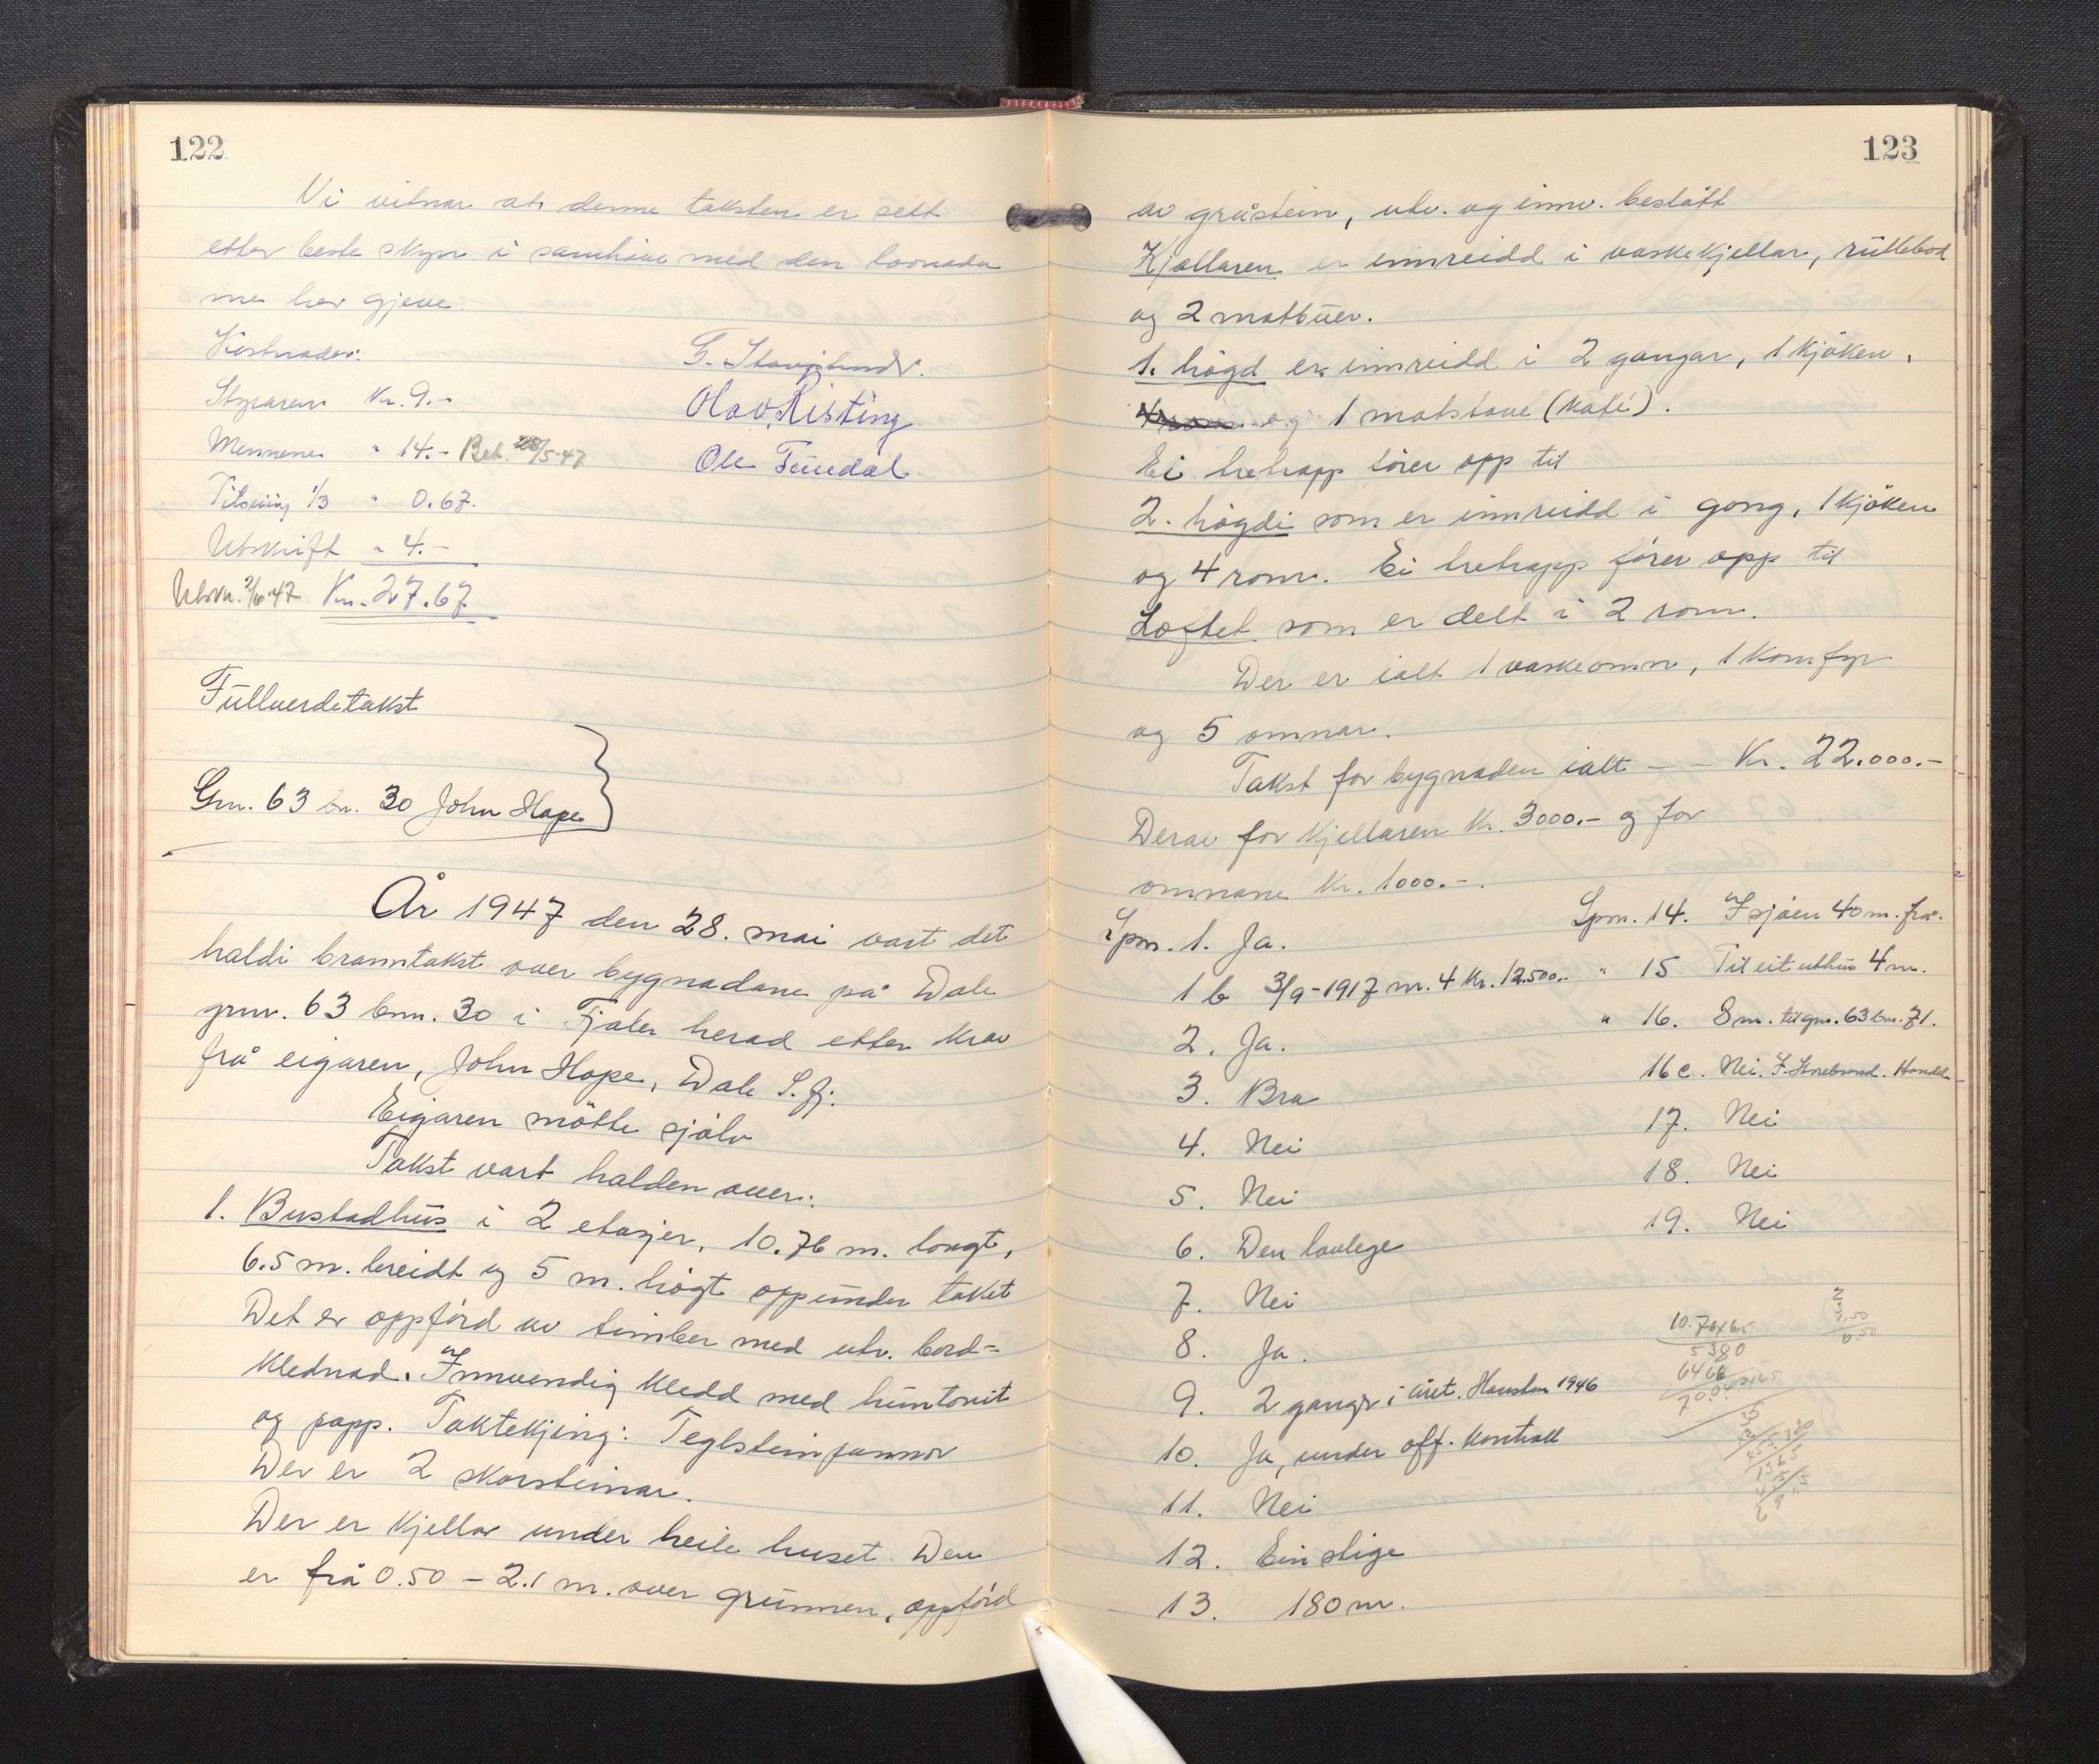 122
Vi vitnar at denne taksten er sett
etter beste skyn i samhöve med den lovnaden
me har gjeve.
Kostnader:
Styraren Kr. 9.-
Mennene " 14.- Bet. 28/5-47
Tilseiing 1/3 " 0.67.
Utskrift " 4.-
Utskr. 2/6-47 Kr. 27.67
Olav Risting
Ole Tundal
Fullverdetakst
Gnr. 63 bnr. 30 John Hope
År 1947 den 28. mai vart det
haldi branntakst over bygnadane på Dale
gnr. 63 bnr. 30 i Fjaler herad etter krav
frå eigaren, John Hope, Dale S.fj.
Eigaren mötte sjölv
Takst vart halden over:
1. Bustadhus i 2 etasjer, 10.76 m. langt,
6.5 m. breidt og 5 m. högt oppunder taket
Det er oppförd av timber med utv. bord-
klednad. Innvendig kledd med huntonit
og papp. Taktekjing: Teglsteinpannor
Der er 2 skorsteinar.
Der er kjellar under heile huset. Den
er frå 0.50 - 2.1 m. over grunnen, oppförd
123
av gråstein, utv. og innv. beslått
Kjellaren er innreidd i vaskekjellar, rullebod
og 2 matbuer.
1. högd er innreidd i 2 gangar, 1 kjöken,
og 1 matstove (kafé).
Ei tretrapp förer opp til
2. högdi som er innreidd i gong, 1 kjöken
og 4 rom. Ei tretrapp förer opp til
Loftet som er delt i 2 rom.
Der er ialt 1 vaskeomn, 1 komfyr
og 5 omnar.
Takst for bygnaden ialt - - Kr. 22.000.-
Derav for kjellaren kr. 3000.- og for
omnane kr. 1000.-.
Spm. 1. Ja.
1 b 3/9-1917 nr. 4 Kr. 12.500.-
2. Ja.
3. Bra
4. Nei
5. Nei
6. Den lovlege
7. Nei
8. Ja.
9. 2 gangr i året. Hausten 1946
10. Ja, under off. kontroll
11. Nei
12. Einslige
13. 180 m.
Spm. 14. I sjöen 40 m. frå.
" 15 Til eit uthus 4 m.
" 16. 8 m. til gnr. 63 bnr. 71.
16 c. Nei. Handel
17. Nei
18. Nei
19. Nei
10.76x6.5
5380
6466